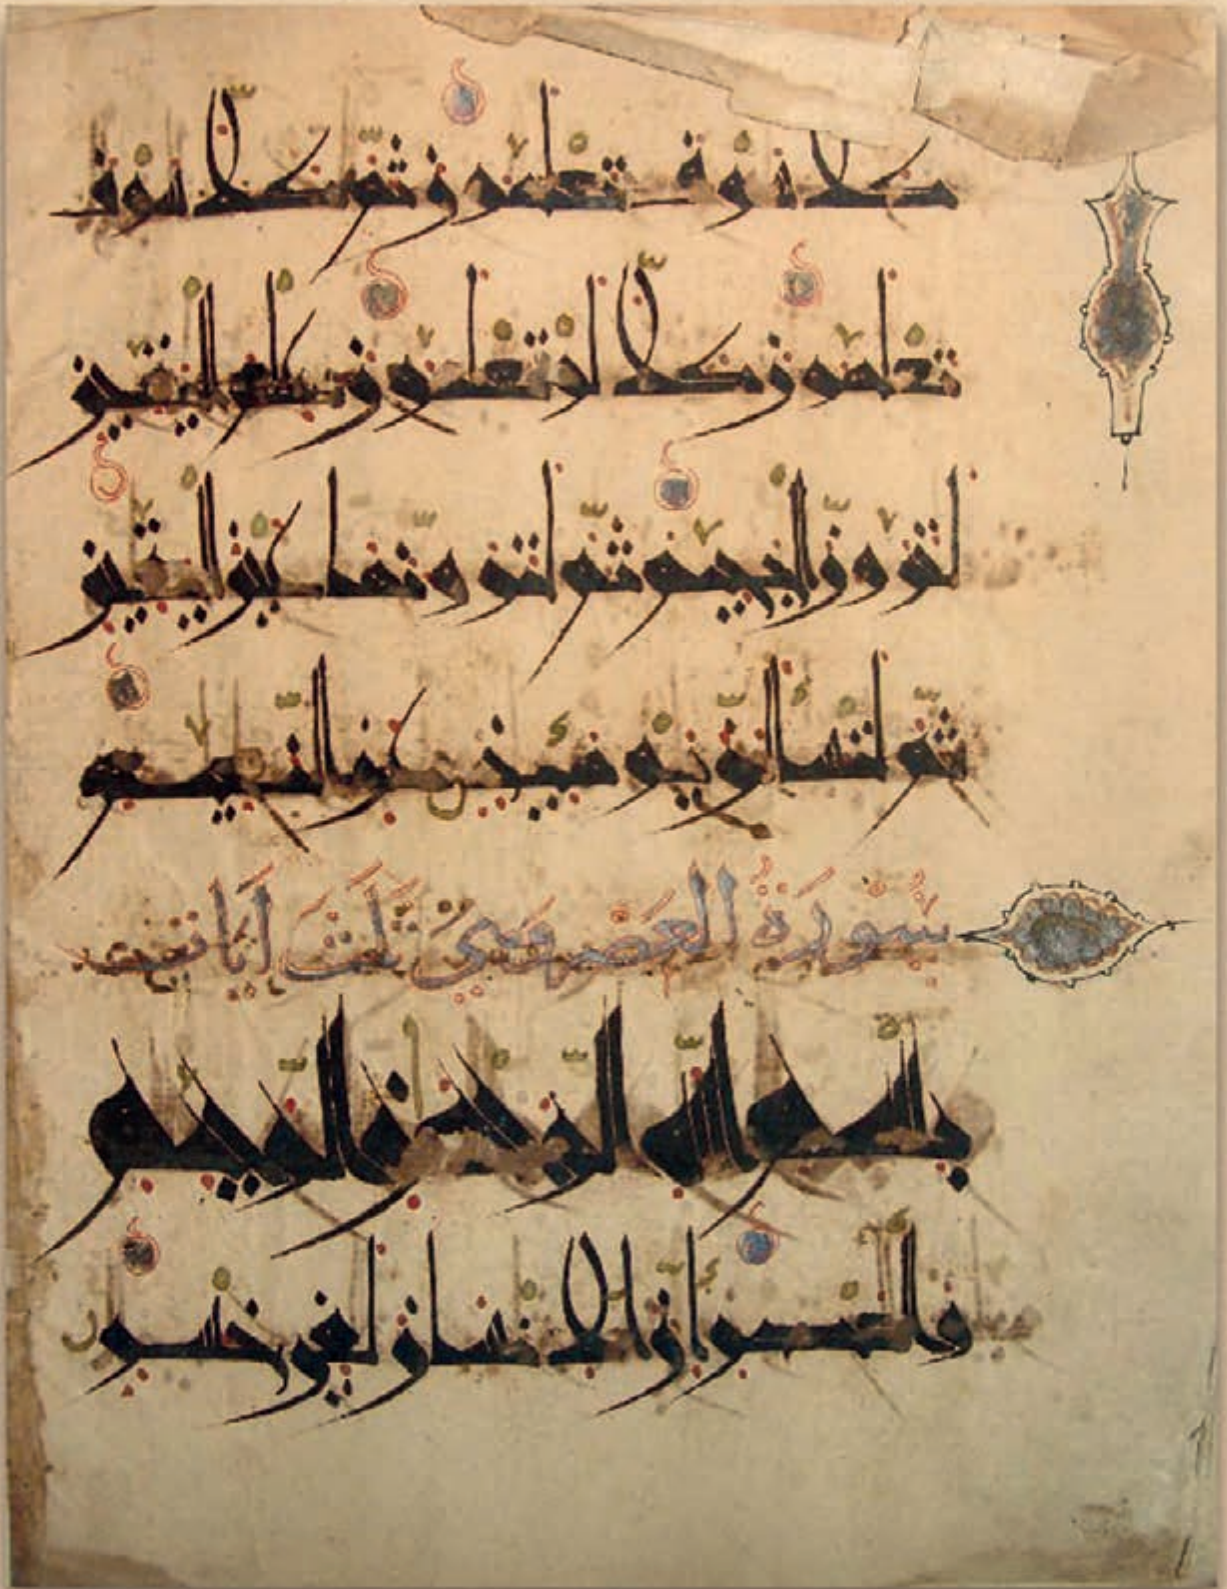 كلا سوف تعلمون ثم كلا سوف
تعلمون كلا لو تعلمون علم اليقين
لترون الجحيم ثم لترونها عين اليقين
ثم لتسألن يومئذ عن النعيم
سورة العصر وهي ثلث آيات
بسم الله الرحمن الرحيم
والعصر إن الإنسان لفي خسر